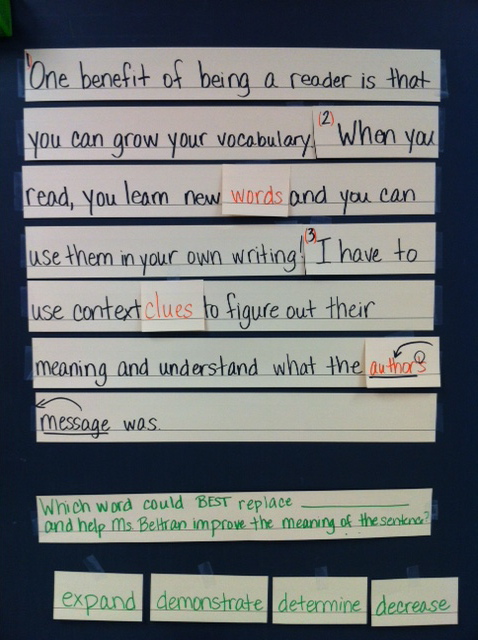 1 One benefit of being a reader is that
you can grow your vocabulary. (2) When you
read, you learn new words and you can
use them in your own writing! (3) I have to
use context clues to figure out their
meaning and understand what the author's
message was.
Which word could BEST replace ____________
and help Ms. Beltran improve the meaning of the sentence?
expand demonstrate determine decrease